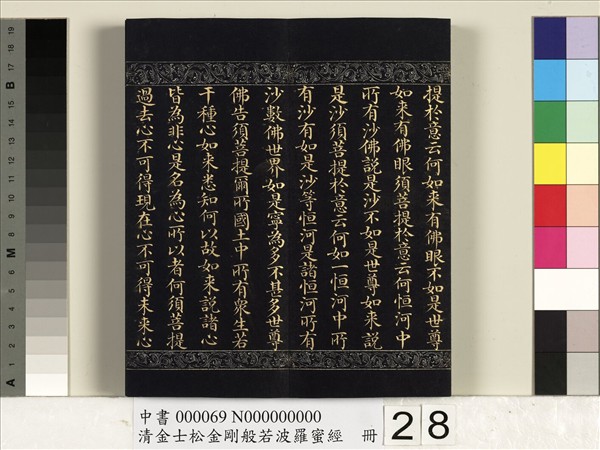 提於意云何如来有佛眼不如是世尊
如来有佛眼須菩提於意云何恒河中
所有沙佛說是沙不如是世尊如来說
是沙須菩提於意云何如一恒河中所
有沙有如是沙等恒河是諸恒河所有
沙數佛世界如是寧為多不甚多世尊
佛告須菩提爾所國土中所有衆生若
干種心如来悉知何以故如来說諸心
皆為非心是名為心所以者何須菩提
過去心不可得現在心不可得未来心
中書 000069 N000000000
清金士松金剛般若波羅蜜經 冊 28
A 1 2 3 4 5 6 M 8 9 10 11 12 13 14 15 B 17 18 19